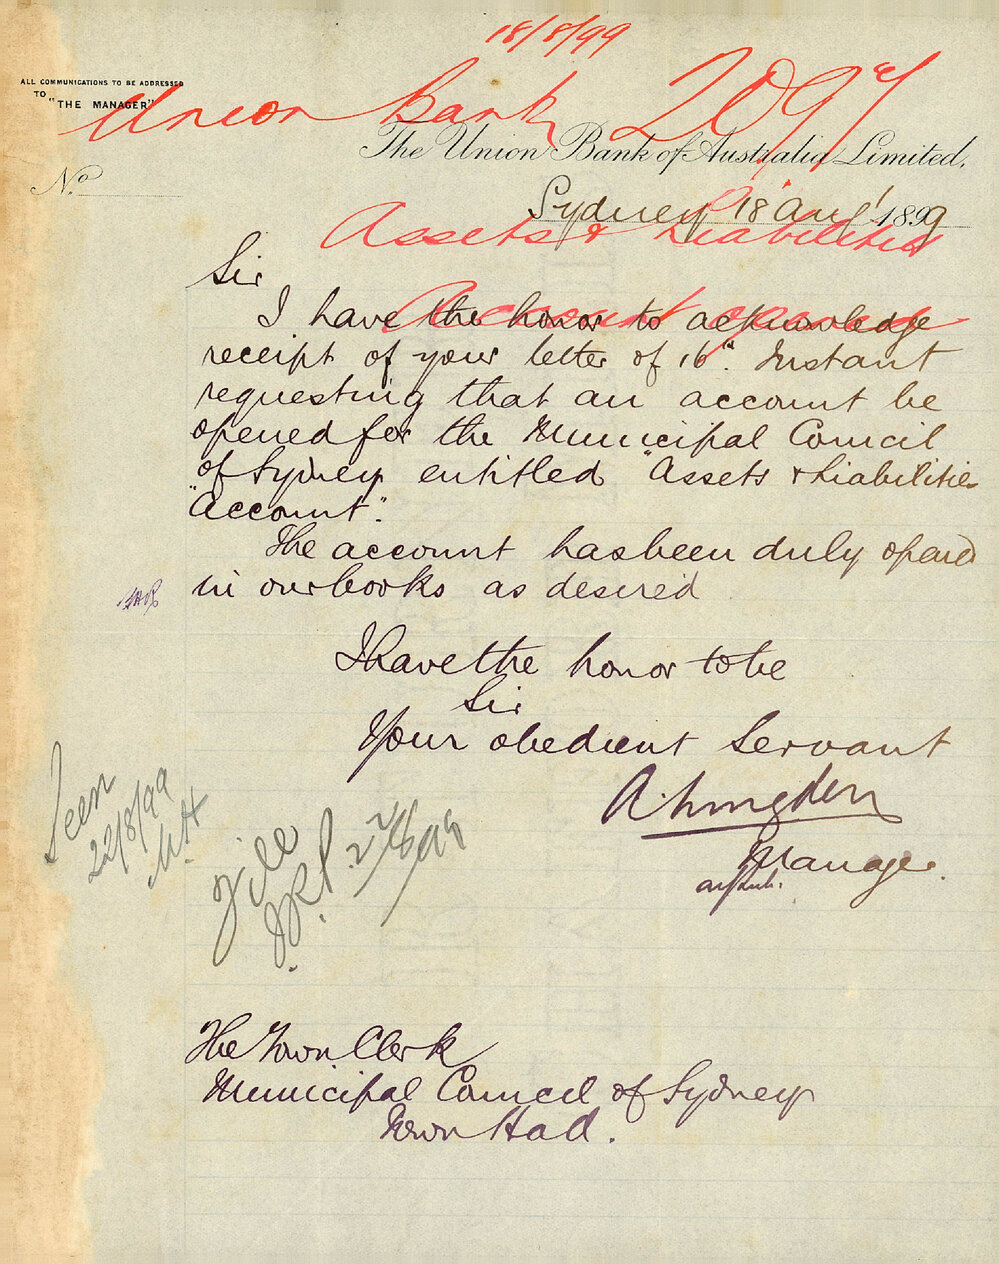 18/8/99
ALL COMMUNICATIONS TO BE ADDRESSED
TO
"THE MANAGER"
Union Bank 2097
The Union Bank of Australia Limited.
No
Sydney, 18 Aug 1899
Assets & Liabilities
Account opened
Sir
I have the honor to acknowledge
receipt of your letter of 16th. Instant
requesting that an account be
opened for the Municipal Council
of Sydney entitled "Assets & Liabilities
"Account".
The account has been duly opened
in our books as desired
I have the honor to be
Sir
Your obedient Servant
Manager.
Seen
22/8/99
File
The Town Clerk
Municipal Council of Sydney
Town Hall.